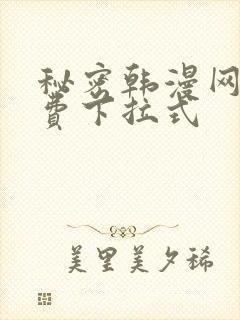 秘密韩漫网
费下拉式
美里美夕稀